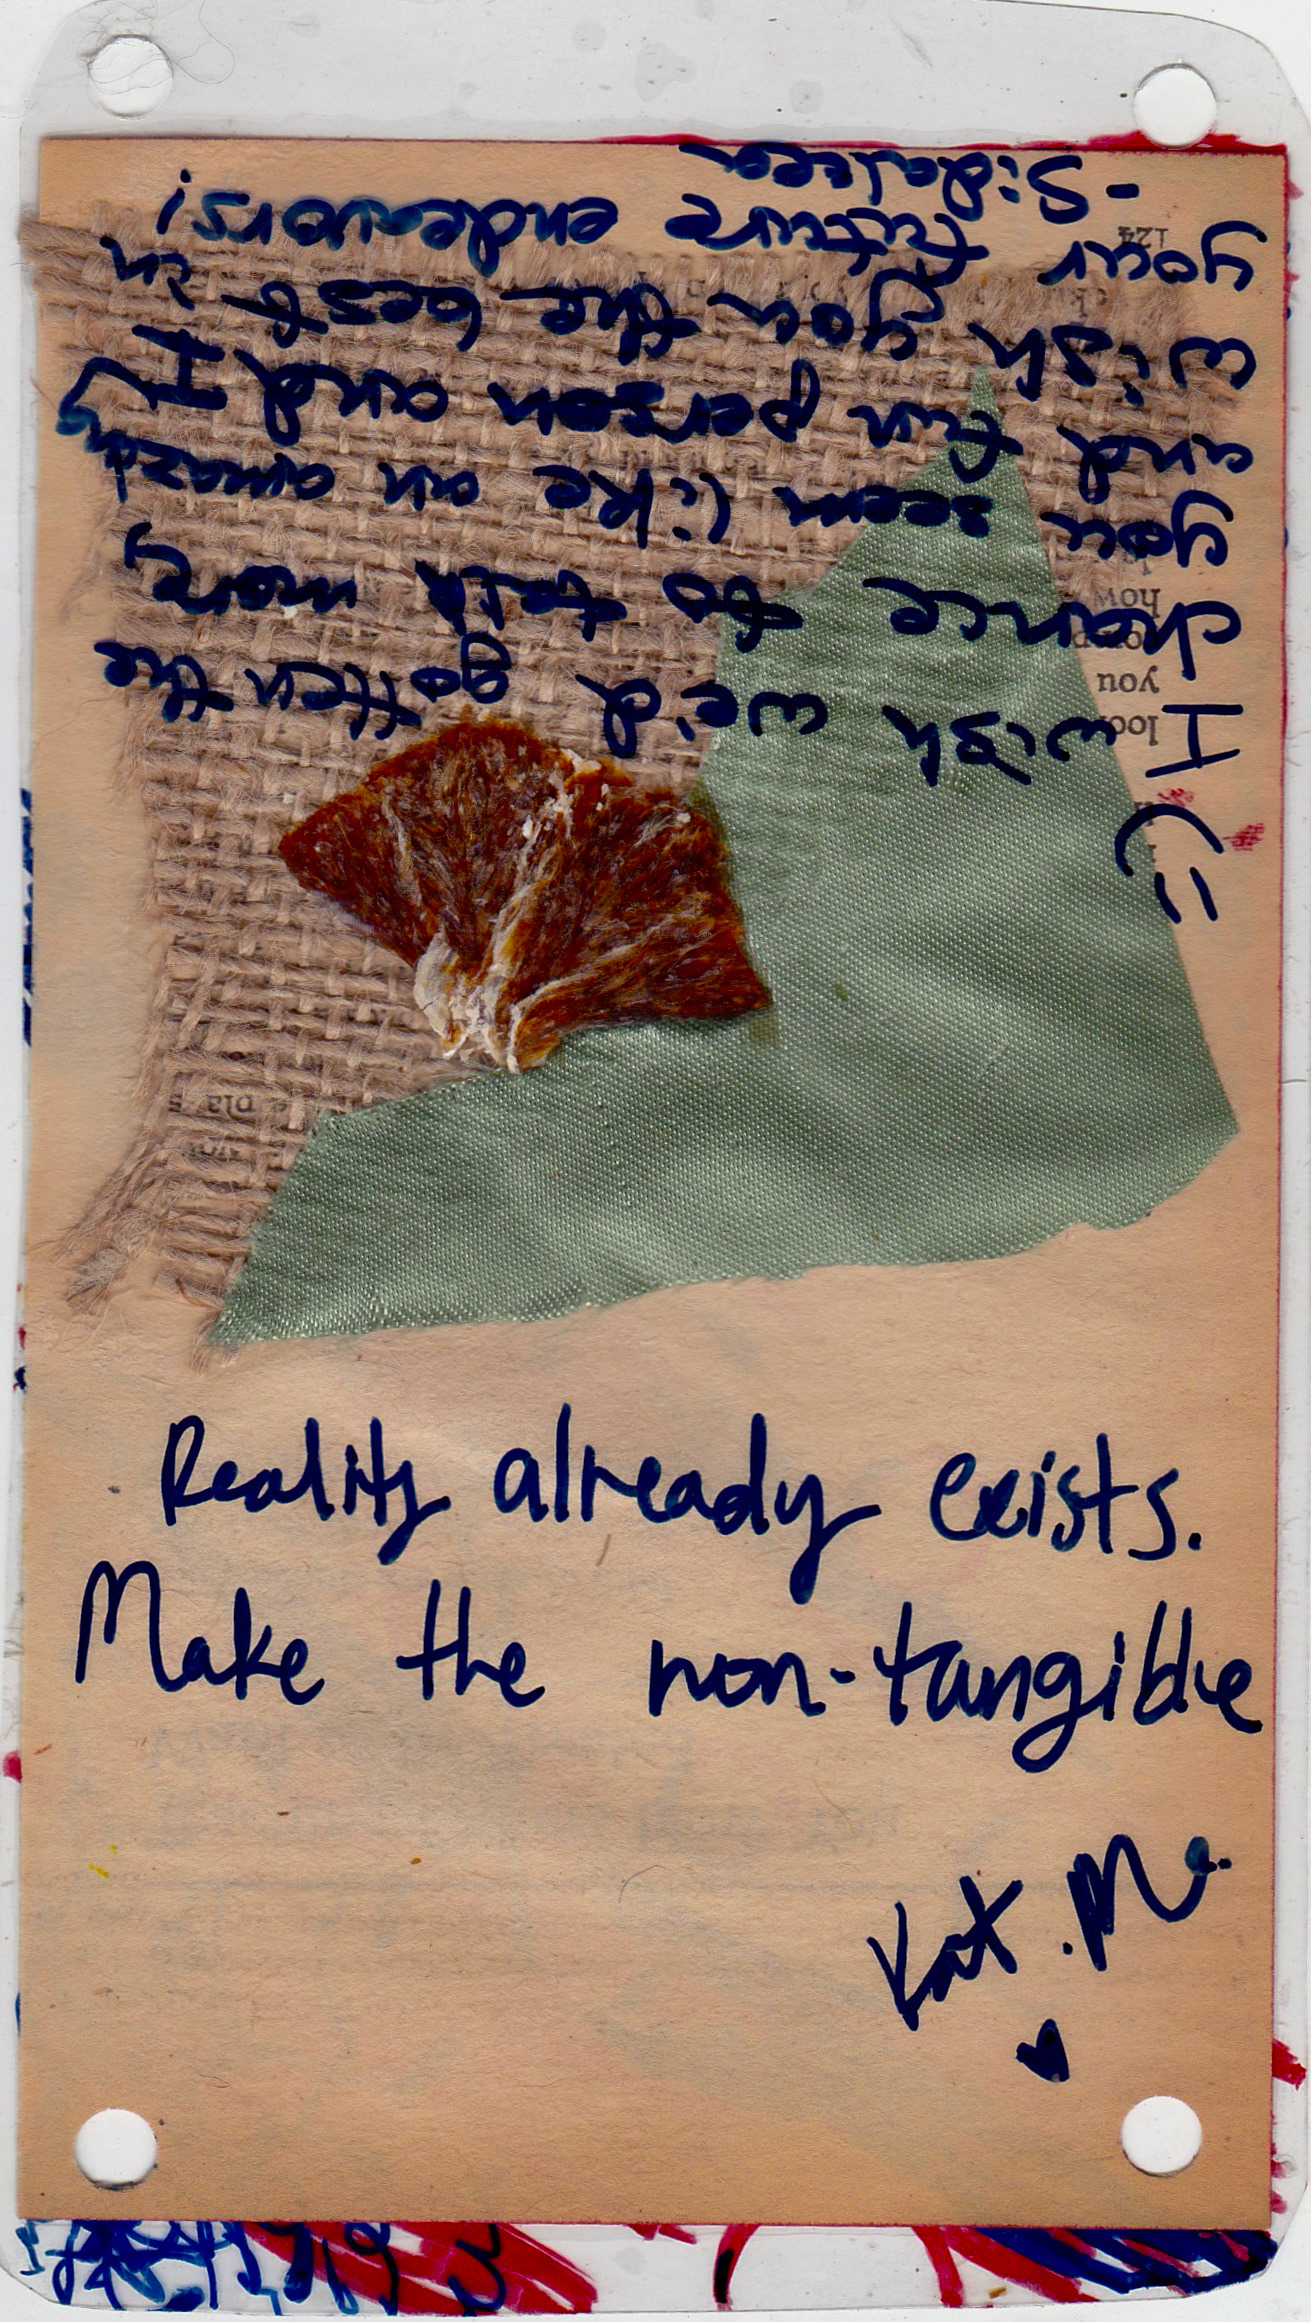 Reality already exists.
Make the non-tangible
Kat .M
I wish we'd gotten the
chance to talk more,
you seem like an amazing
and fun person and I
wish you the best in
your future endeavors!
124
you
how